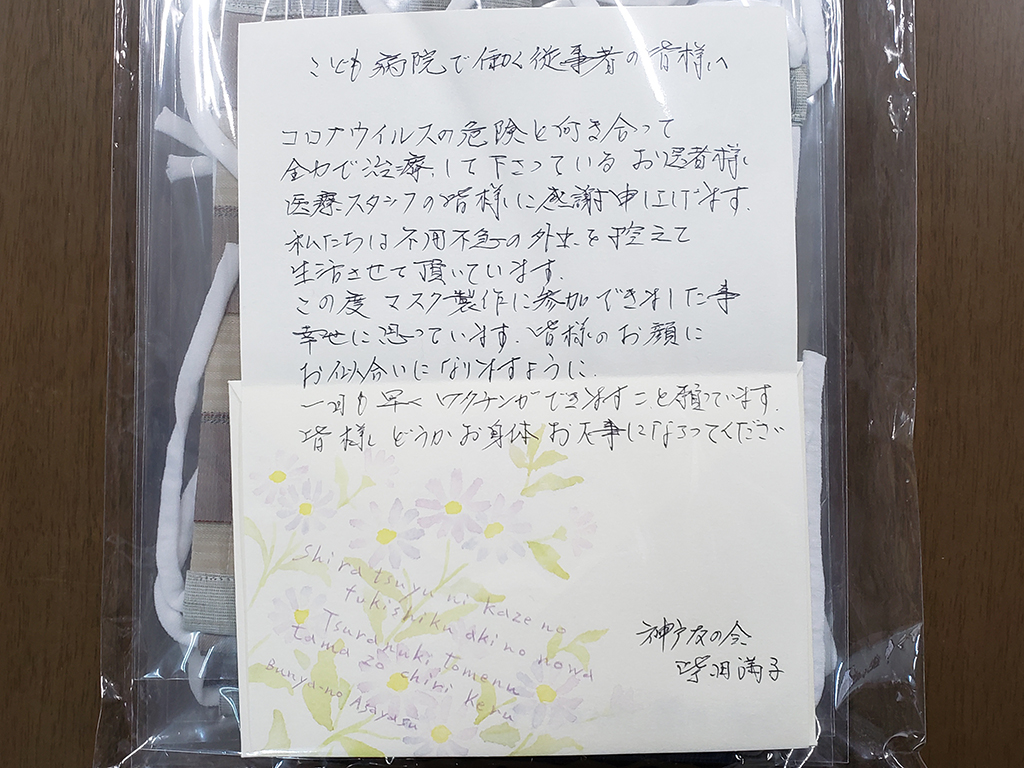 こども病院で働く従事者の皆様へ
コロナウイルスの危険と向き合って
全力で治療して下さっているお医者様
医療スタッフの皆様に感謝申上げます.
私たちは不用不急の外出を控えて
生活させて頂いています.
この度 マスク製作に参加できました事
幸せに思っています.皆様のお顔に
お似合いになりますように.
一日も早くワクチンができますこと願っています.
皆様 どうかお身体お大事になさってください
Shiratsuyu ni kaze no
fukishiku aki no nowa
Tsuranuki tomenu
tama zo chiri keru
Bunya-no Asayasu
神戸友の会